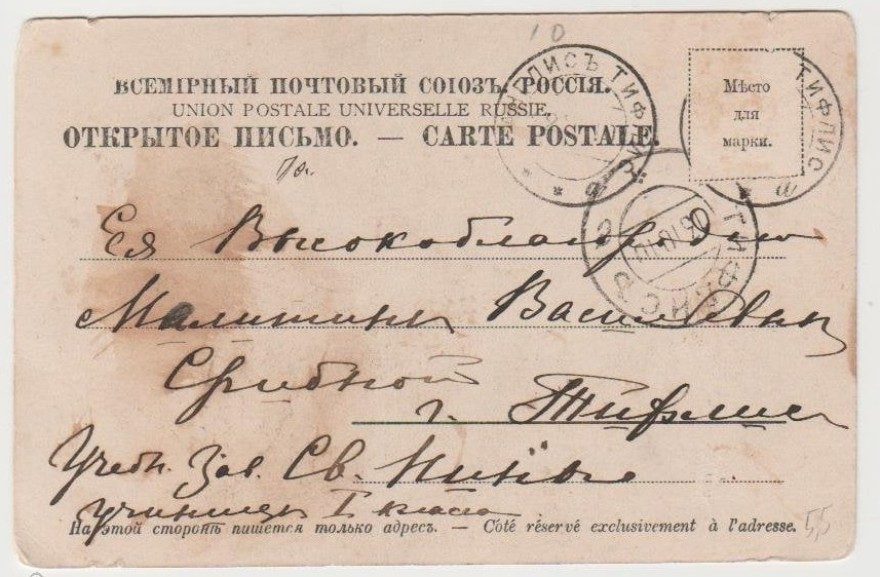 10
ВСЕМІРНЫЙ ПОЧТОВЫЙ СОЮЗЪ. РОССІЯ.
UNION POSTALE UNIVERSELLE RUSSIE.
ОТКРЫТОЕ ПИСЬМО. — CARTE POSTALE.
ТИФЛИСЪ ТИФЛИСЪ
а
ТИФЛИС
а
Мѣсто
для
марки.
ТИФЛИС
Ея Высокоблагор
Васил
г. Тифлис
Учебн. Зав. Св. Нины
I класса
На этой сторонѣ пишется только адресъ. — Côté réservé exclusivement à l'adresse.
55